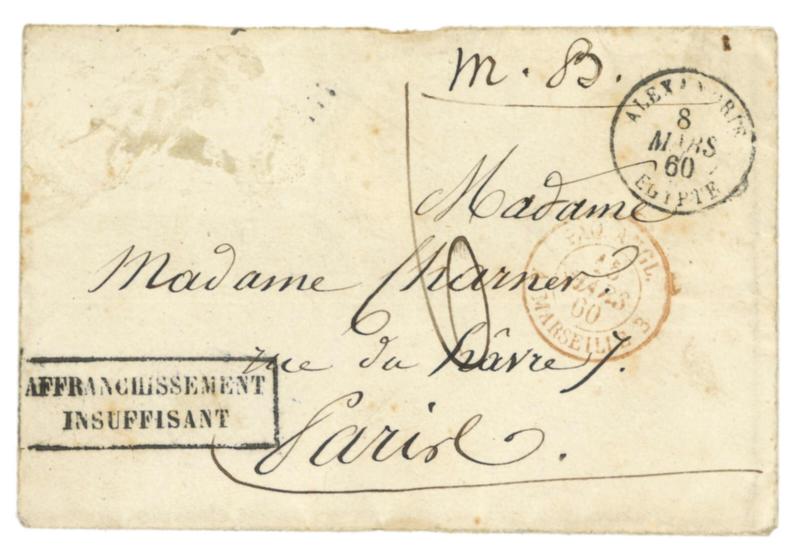 m. B.
ALEXANDRIE
8
MARS
60
EGYPTE
Madame
Madame Charner
PAQ. ANGL.
MARS
60
MARSEILLE 3
rue du hâvre 7.
AFFRANCHISSEMENT
INSUFFISANT
Paris.